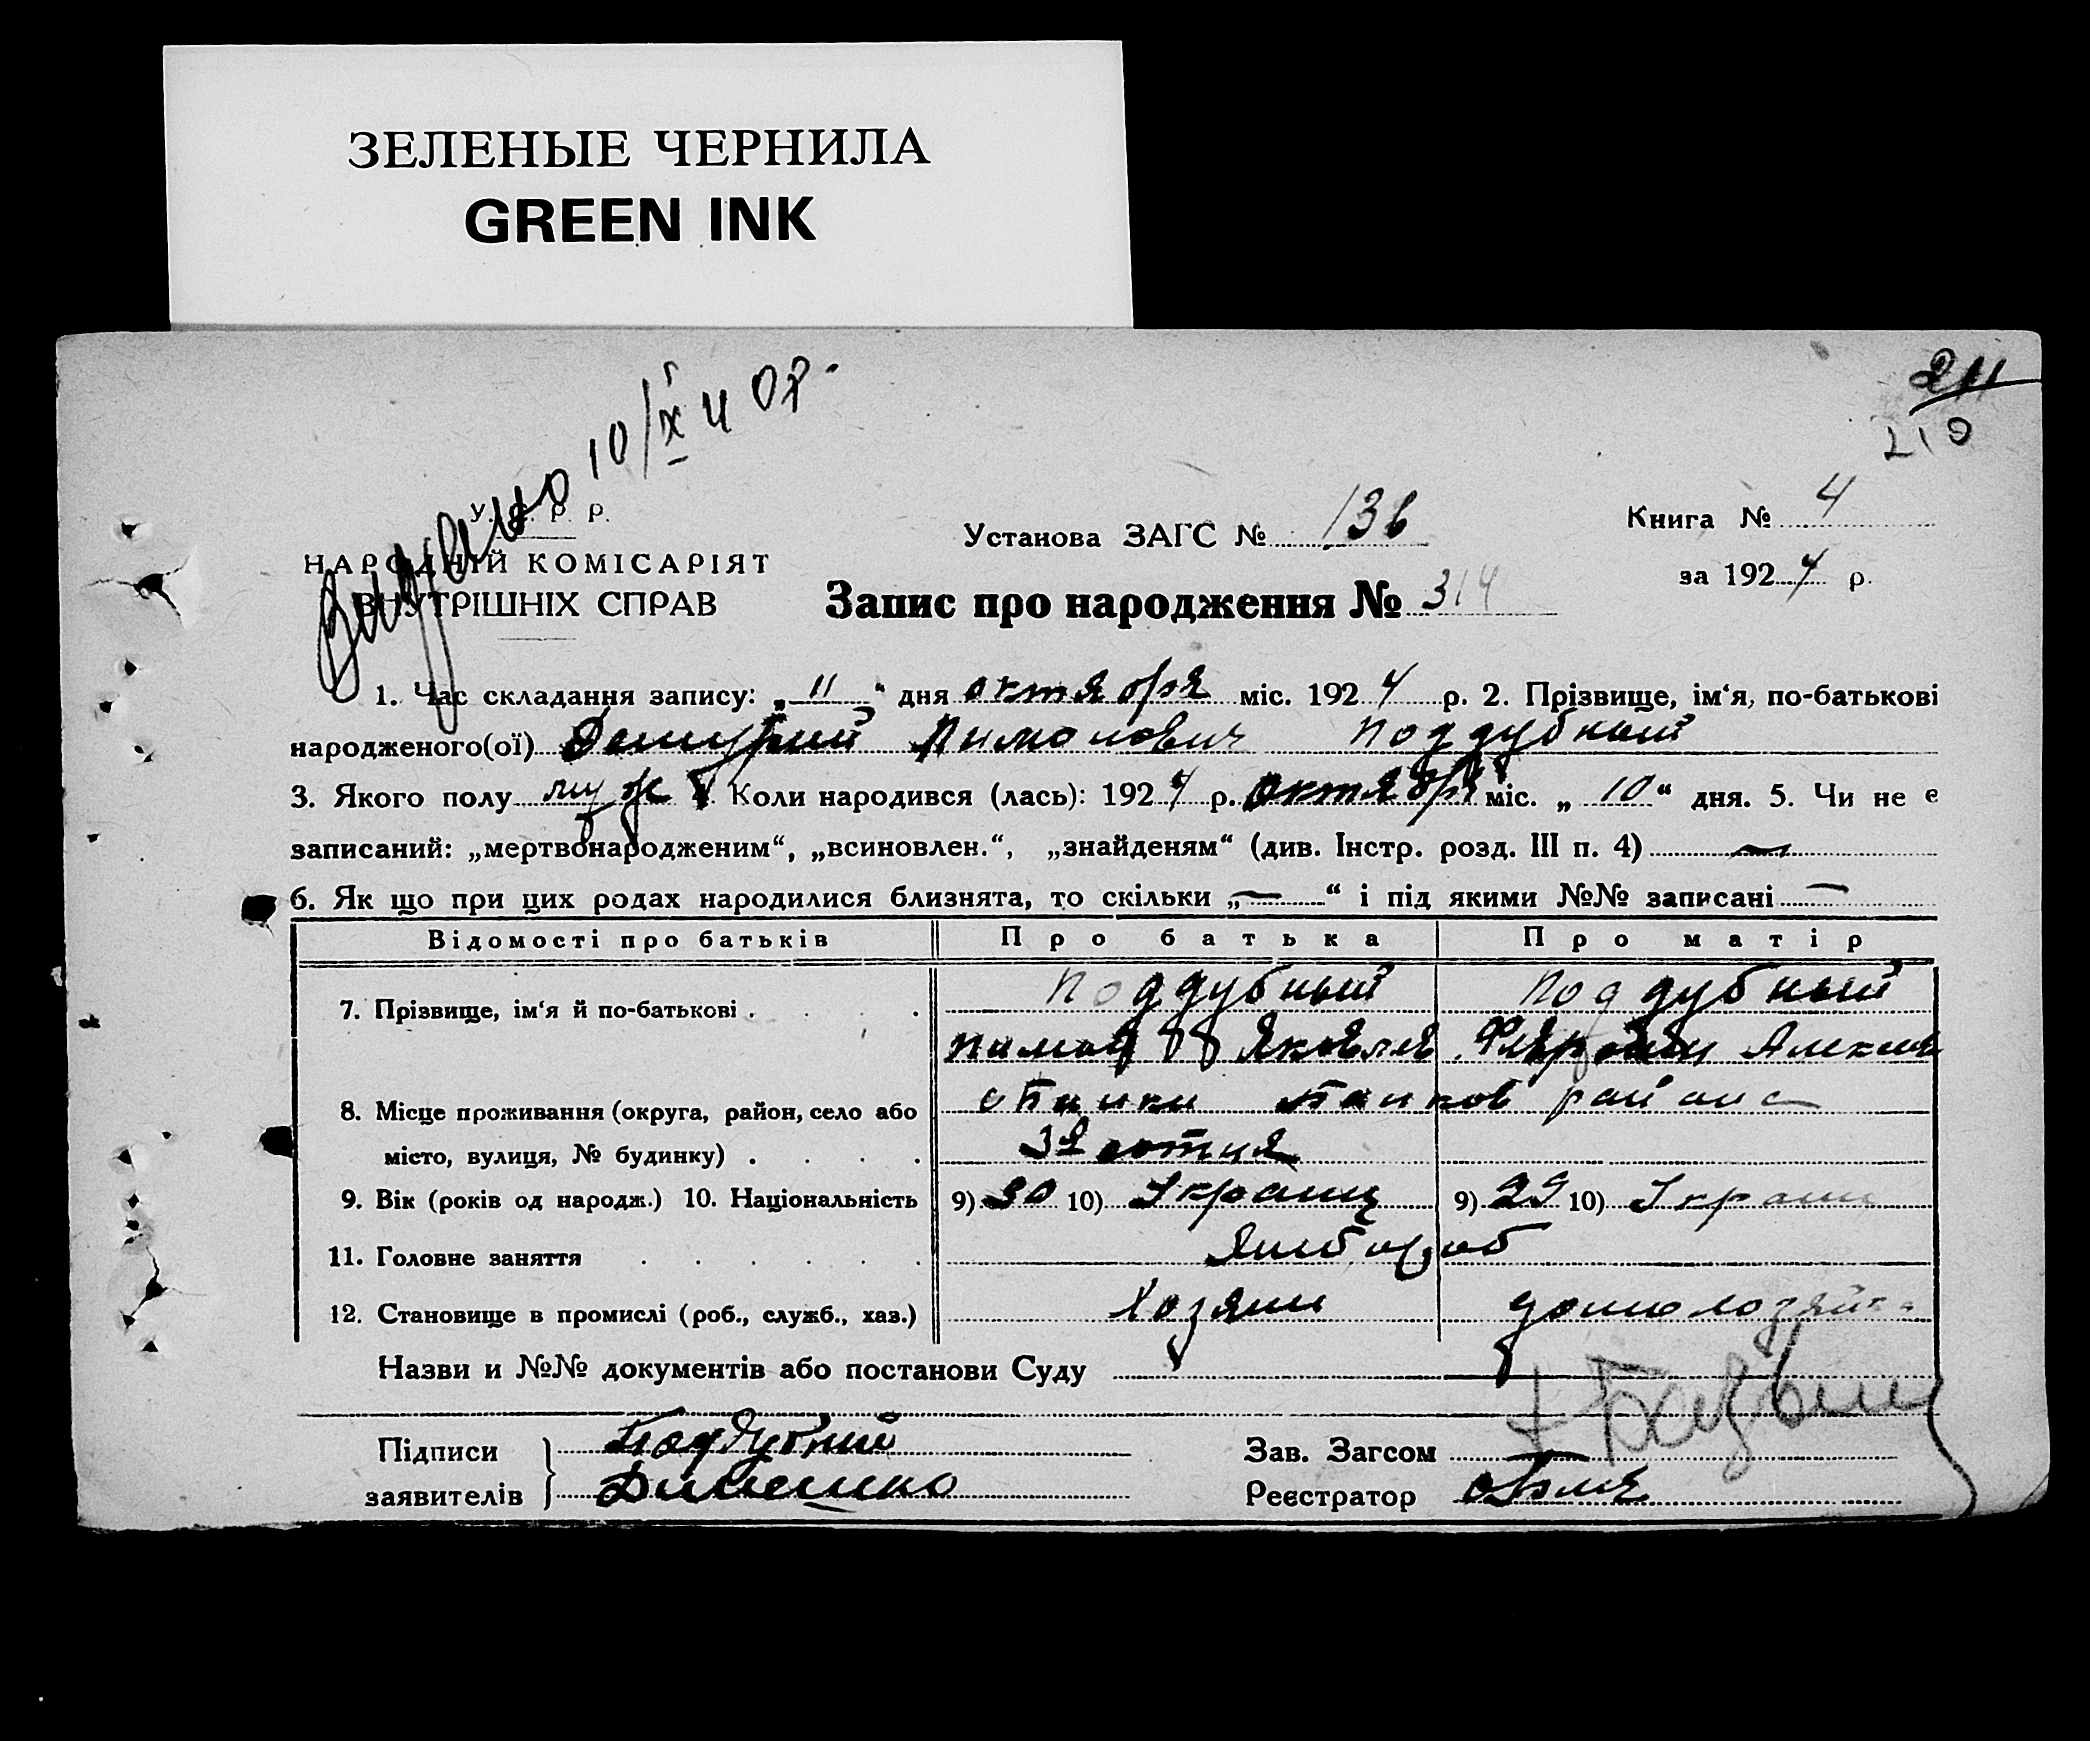 ЗЕЛЕНЫЕ ЧЕРНИЛА
GREEN INK
211
210
10/X 40р.
У. С. Р. Р.
НАРОДНІЙ КОМІСАРІЯТ
ВНУТРІШНІХ СПРАВ
Установа ЗАГС №
Книга № 4
за 1924 р.
Запис про народження № 314
1. Час складання запису: „11“ дня октября міс. 1924 р. 2. Прізвище, ім‘я, по-батькові
народженого(ої) Поддубный
3. Якого полу муж Коли народився (лась): 1924 р. октября міс. „10“ дня. 5. Чи не є
записаний: „мертвонародженим“, „всиновлен.“, „знайденям“ (див. Інстр. розд. III п. 4) —
6. Як що при цих родах народилися близнята, то скільки „—“ і під якими №№ записані —
Відомості про батьків Про батька Про матір
7. Прізвище, ім‘я й по-батькові Поддубный Поддубный
Яковлев
8. Місце проживання (округа, район, село або района
місто, вулиця, № будинку) сотня
9. Вік (років од народж.) 10. Національність 9) 30 10) Украинц 9) 29 10) Украин
11. Головне заняття
12. Становище в промислі (роб., служб., хаз.) Хозяин
Назви и №№ документів або постанови Суду
Підписи Поддубний Зав. Загсом
заявителів Реєстратор